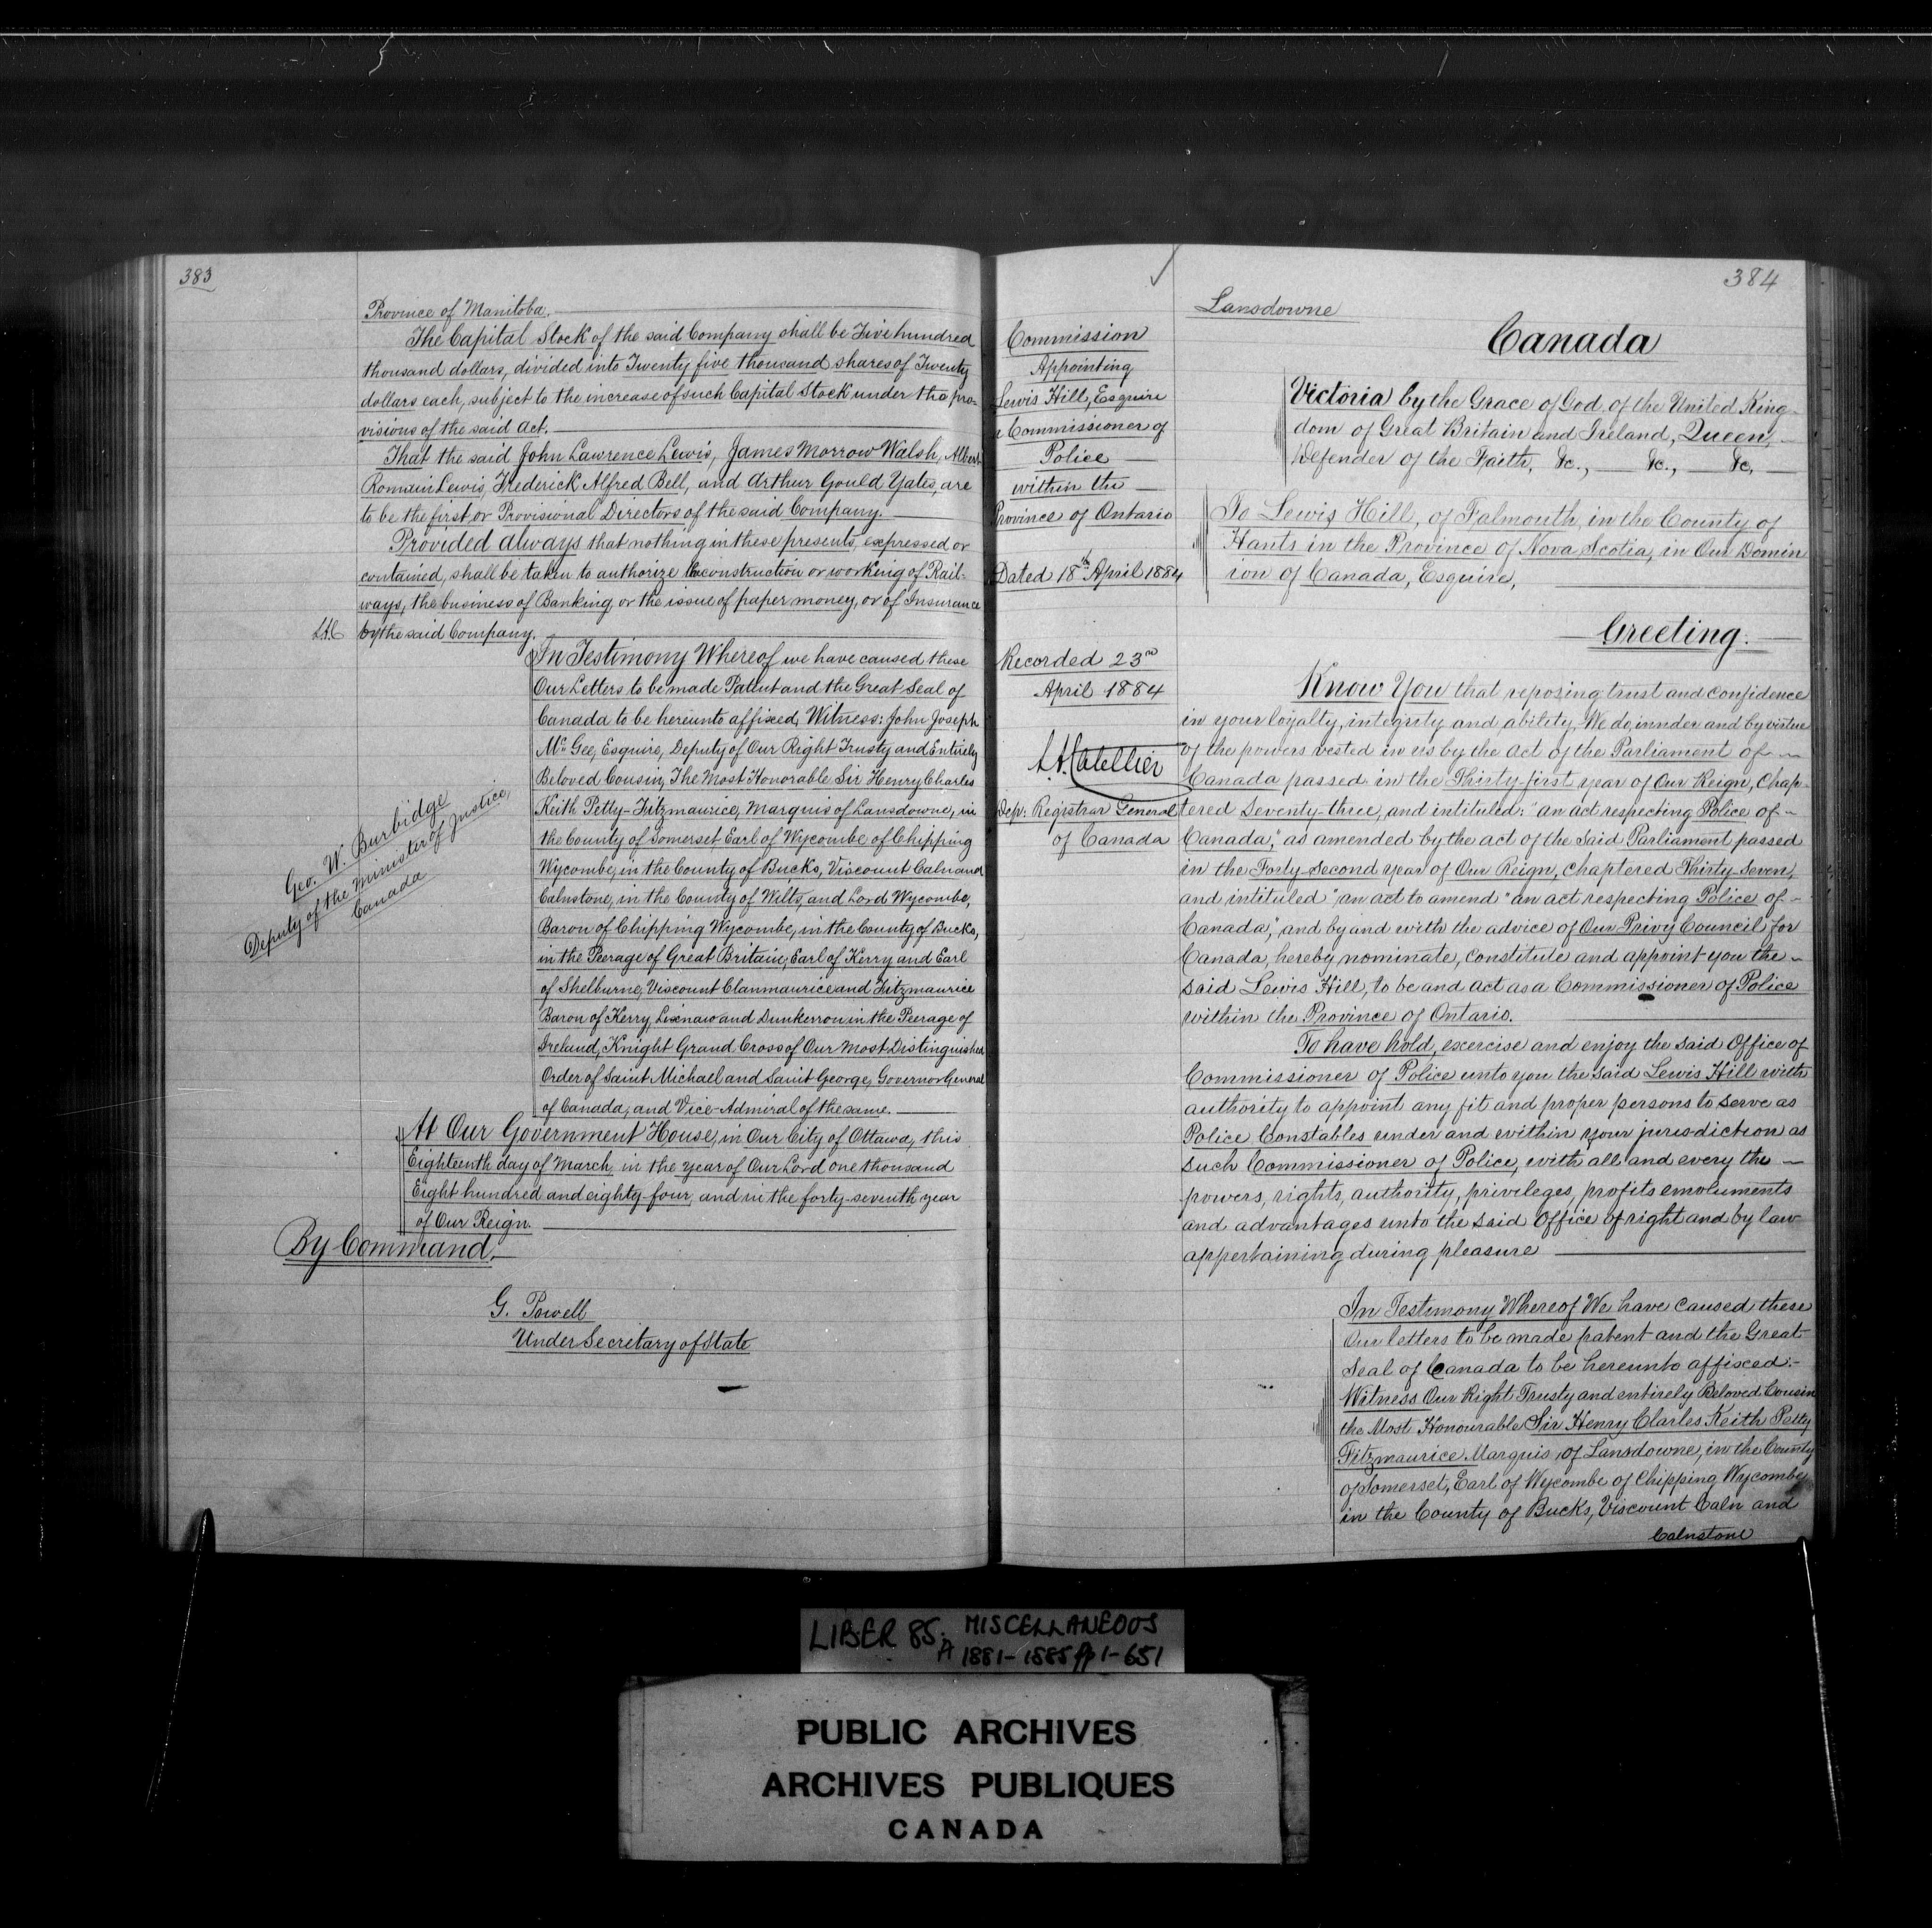 383
Province of Manitoba.
The Capital Stock of the said Company shall be Five hundred
thousand dollars, divided into Twenty five thousand shares of Twenty
dollars each, subject to the increase of such Capital Stock under the pro-
visions of the said Act.
That the said John Lawrence Lewis, James Morrow Walsh, Albert
Romain Lewis, Frederick Alfred Bell, and Arthur Gould Yates, are
to be the first or Provisional Directors of the said Company.
Provided always that nothing in these presents, expressed or
contained, shall be taken to authorize construction or working of Rail-
ways, the business of Banking, or the issue of paper money, or of Insurance
by the said Company.
In Testimony Whereof we have caused these
Our Letters to be made Patent and the Great Seal of
Canada to be hereunto affixed, Witness: John Joseph
Mc Gee, Esquire, Deputy of Our Right Trusty and Entirely
Beloved Cousin, The Most Honorable Sir Henry Charles
Keith Petty-Fitzmaurice, Marquis of Lansdowne, in
the County of Somerset Earl of Wycombe of Chipping
Wycombe, in the County of Bucks, Viscount Caln and
Calnstone, in the County of Wilts, and Lord Wycombe,
Baron of Chipping Wycombe, in the County of Bucks,
in the Peerage of Great Britain; Earl of Kerry and Earl
of Shelburne, Viscount Clanmaurice and Fitzmaurice
Baron of Kerry, Lixnaw and Dunkerron in the Peerage of
Ireland, Knight Grand Cross of Our Most Distinguished
Order of Saint Michael and Saint George, Governor General
of Canada, and Vice-Admiral of the same.
At Our Government House, in Our City of Ottawa, this
Eighteenth day of March, in the year of Our Lord one thousand
Eight hundred and eighty-four, and in the forty-seventh year
of Our Reign.
By Command,
G. Powell
Under Secretary of State
Geo. W. Burbidge
Deputy of the Minister of Justice,
Canada
384
Lansdowne
Canada
Commission
Appointing
Lewis Hill, Esquire
a Commissioner of
Police
within the
Province of Ontario
Dated 18th April 1884
Recorded 23rd
April 1884
L.A. Catellier
Dep: Registrar General
of Canada
Victoria by the Grace of God, of the United King-
dom of Great Britain and Ireland, Queen,
Defender of the Faith, &c., &c., &c,
To Lewis Hill, of Falmouth, in the County of
Hants in the Province of Nova Scotia, in Our Domin
ion of Canada, Esquire,
Greeting.
Know You that reposing trust and confidence
in your loyalty, integrity and ability, We do under and by virtue
of the powers vested in us by the Act of the Parliament of
Canada passed in the Thirty-first year of Our Reign, Chap-
tered Seventy-three, and intituled: "an act respecting Police of
Canada," as amended by the act of the said Parliament passed
in the Forty second year of Our Reign, chaptered Thirty Seven,
and intituled "an act to amend "an act respecting Police of
Canada," and by and with the advice of Our Privy Council for
Canada, hereby nominate, constitute and appoint you the
said Lewis Hill, to be and act as a Commissioner of Police
within the Province of Ontario.
To have hold, exercise and enjoy the said Office of
Commissioner of Police unto you the said Lewis Hill with
authority to appoint any fit and proper persons to serve as
Police Constables under and within your jurisdiction as
such Commissioner of Police, with all and every the
powers, rights, authority, privileges, profits emoluments
and advantages unto the said Office of right and by law
appertaining during pleasure
In Testimony Whereof We have caused these
Our letters to be made patent and the Great
Seal of Canada to be hereunto affixed:-
Witness Our Right Trusty and entirely Beloved Cousin
the Most Honourable Sir Henry Charles Keith Petty
Fitzmaurice Marquis of Lansdowne, in the County
of Somerset, Earl of Wycombe of Chipping Wycombe,
in the County of Bucks, Viscount Caln and
Calnstone
LIBER 85. MISCELLANEOUS
A 1881-1885 pp 1-651
PUBLIC ARCHIVES
ARCHIVES PUBLIQUES
CANADA